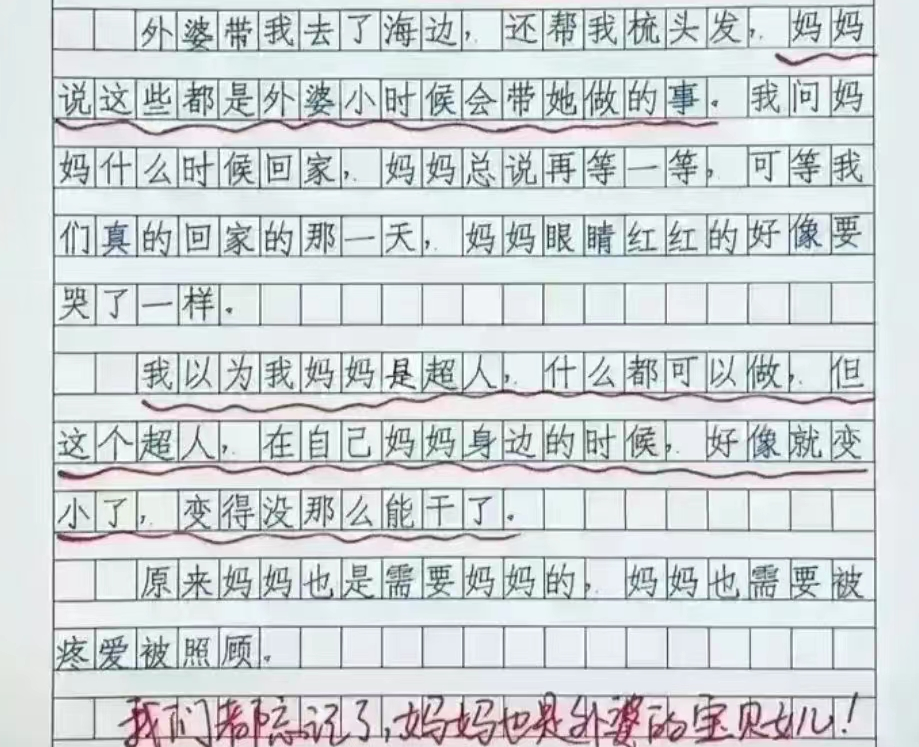 外婆带我去了海边，还帮我梳头发，妈妈
说这些都是外婆小时候会带她做的事。我问妈
妈什么时候回家，妈妈总说再等一等，可等我
们真的回家的那一天，妈妈眼睛红红的好像要
哭了一样。
我以为我妈妈是超人，什么都可以做，但
这个超人，在自己妈妈身边的时候，好像就变
小了，变得没那么能干了。
原来妈妈也是需要妈妈的，妈妈也需要被
疼爱被照顾。
我们都忘记了,妈妈也是外婆的宝贝女儿!